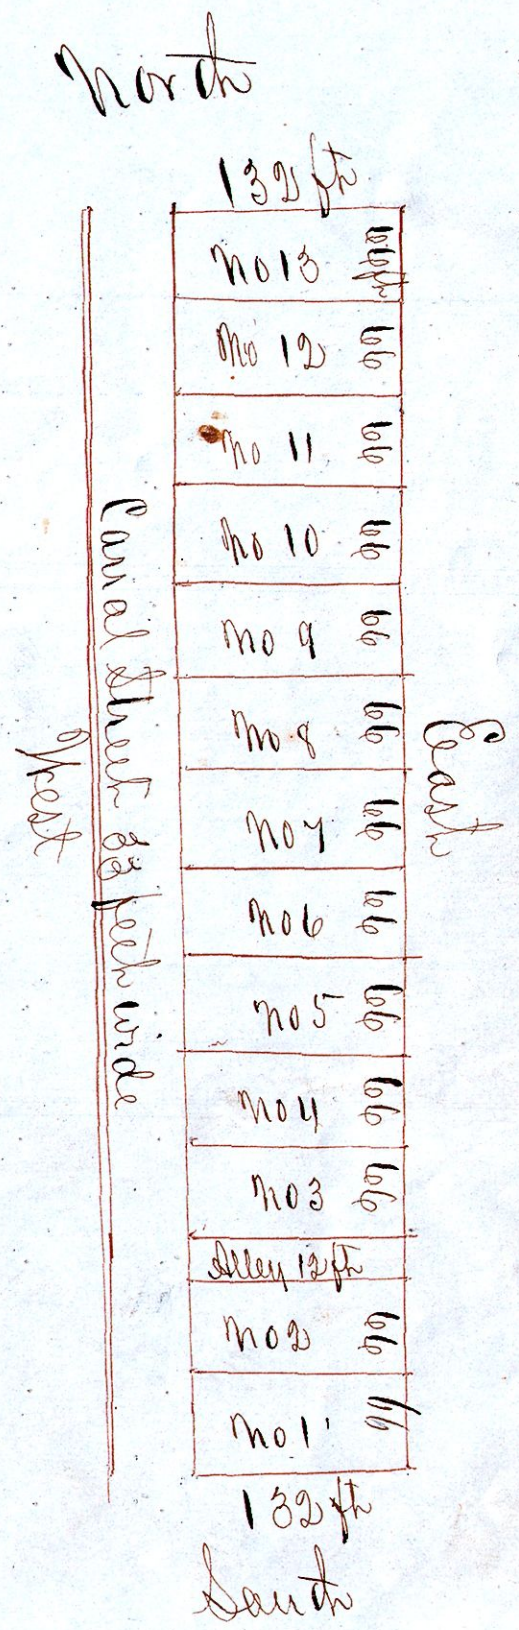 North
132 ft
No 13 66 ft
No 12 66
No 11 66
No 10 66
No 9 66
No 8 66
No 7 66
No 6 66
No 5 66
No 4 66
No 3 66
Alley 12 ft
No 2 66
No 1 66
132 ft
South
East
Canal Street 33 feet wide
West